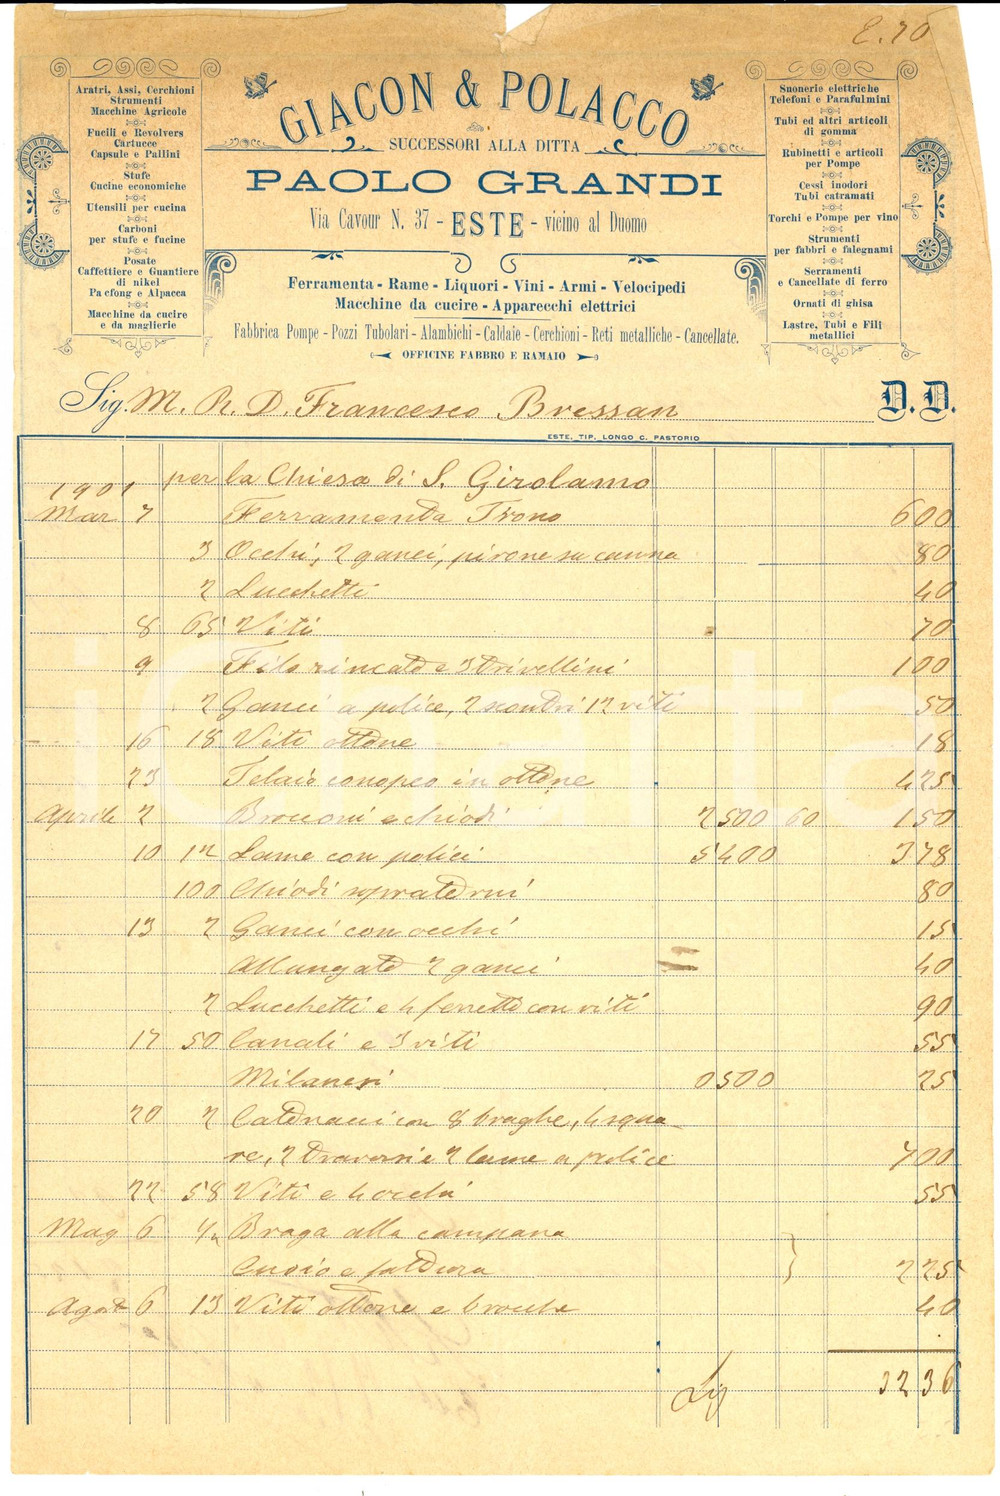 E. 70
GIACON & POLACCO
SUCCESSORI ALLA DITTA
PAOLO GRANDI
Via Cavour N. 37 - ESTE - vicino al Duomo
Ferramenta - Rame - Liquori - Vini - Armi - Velocipedi
Macchine da cucire - Apparecchi elettrici
Fabbrica Pompe - Pozzi Tubolari - Alambichi - Caldaie - Cerchioni - Reti metalliche - Cancellate.
OFFICINE FABBRO E RAMAIO
Aratri, Assi, Cerchioni
Strumenti
Macchine Agricole
Fucili e Revolvers
Cartucce
Capsule e Pallini
Stufe
Cucine economiche
Utensili per cucina
Carboni
per stufe e fucine
Posate
Caffettiere e Guantiere
di nikel
Pacfong e Alpacca
Macchine da cucire
e da maglierie
Suonerie elettriche
Telefoni e Parafulmini
Tubi ed altri articoli
di gomma
Rubinetti e articoli
per Pompe
Cessi inodori
Tubi catramati
Torchi e Pompe per vino
Strumenti
per fabbri e falegnami
Serramenti
e Cancellate di ferro
Ornati di ghisa
Lastre, Tubi e Fili
metallici
Sig. M. R. D. Francesco Bressan D. D.
ESTE, TIP. LONGO C. PASTORIO
per la Chiesa di S. Girolamo
1901
Mar 7 Ferramenda Trono 600
3 Occhi, 2 ganci, pirone su canna 80
2 Lucchetti 40
8 65 Viti 70
9 Filo zincato e 3 trivellini 100
2 Ganci a police, 2 scontri 12 viti 50
16 18 Viti ottone 18
23 Telaio conopeo in ottone 425
Aprile 2 Brocconi e chiodi 2500 60 150
10 12 Lame con polici 5400 378
100 Chiodi 80
13 2 Ganci con occhi 15
Allungato 2 ganci 40
2 Lucchetti e 4 ferretti con viti 90
17 50 Canali e 3 viti 55
Milanesi 0500 25
20 2 Catenacci con 8 braghe, 4 squa
re, 2 traversi e 2 lame a police 700
22 58 Viti e 4 occhi 55
Mag 6 1/2 Braga alla campana
Cuoio e fattura 225
Agot 6 13 Viti ottone e brocche 40
3236